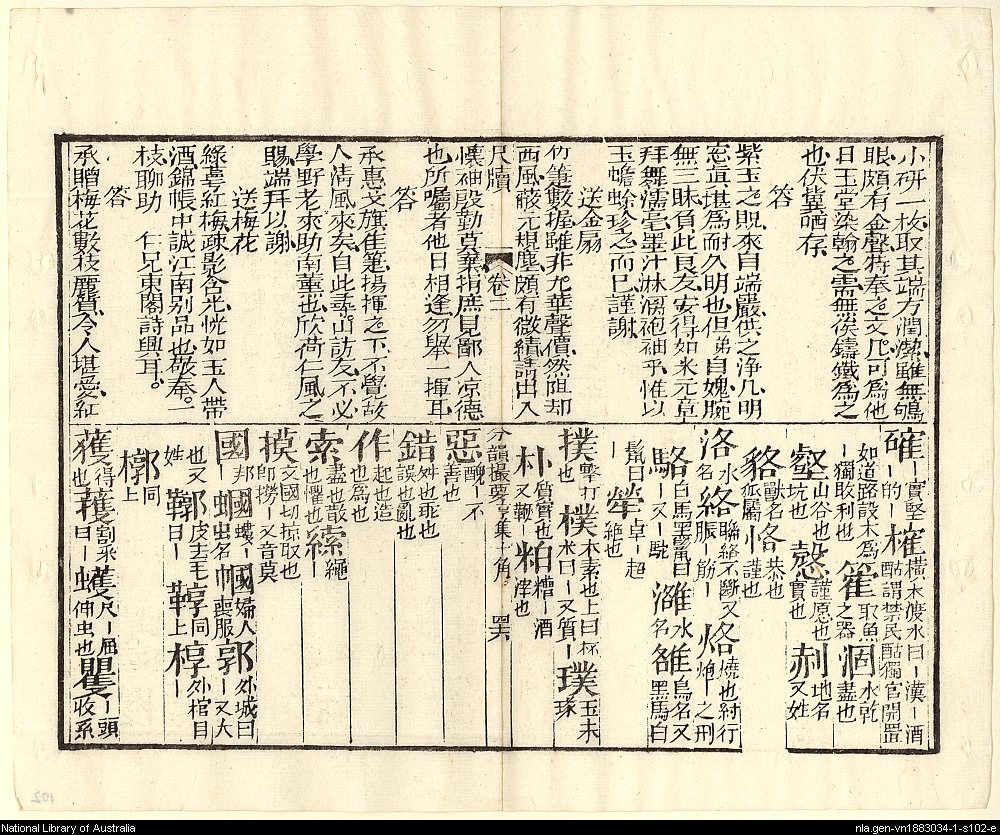 小研一枚取其端方潤潔雖無鴝
眼頗有金聲特奉之文几可爲他
日玉堂染翰之需無俟鑄鐵爲之
也伏冀哂存
答
紫玉之貺來自端嚴供之淨几明
窓眞堪爲耐久朋也但弟自媿腕
無三昧負此良友安得如米元章
拜舞濡毫墨汁淋漓袍袖乎惟以
玉蟾蜍珍之而已謹謝
送金扇
竹箑數握雖非九華聲價然阻却
西風蔽元規塵頗有微績請出入
尺牘 卷二
懷袖殷勤克棄捐庶見鄙人凉德
也所囑者他日相逢勿舉一揮耳
答
承惠文旗隹箑揚揮之下不覺故
人淸風來矣自此尋山訪友不必
學野老來助南薰也欣荷仁風之
賜端拜以謝
送梅花
綠萼紅梅疎影含光恍如玉人帶
酒錦帳中誠江南别品也敬奉一
枝聊助 仁兄東閣詩興耳。
答
承贈梅花數枝麗質令人堪愛紅
確｜實堅｜的｜榷橫木渡水曰｜漢｜酒酤謂禁民酤獨官開置
如道路設木爲｜獨取利也篧取魚之器涸水乾盡也
壑山谷也坑也愨謹愿也實也郝地名又姓
貉獸名狐屬恪恭也謹也
洛水名絡聯絡不斷又脈｜筋｜烙燒也紂行炮｜之刑
駱白馬黑鬣曰｜又｜駝濼水名雒鳥名又黑馬白鬣曰｜犖卓｜超絶也
撲擊打也樸木素也上曰杯木曰｜又質｜璞玉未琢
朴質實也又鞭｜粕糟｜酒滓也
分韻撮要亨集十角 罡六
惡醜｜不善也
錯舛也乖也誤也亂也
作起也造也爲也
索盡也散也懼也𦃃繩｜
摸文國切掠取也卽撈｜又音莫
國邦｜蟈螻｜虫名幗婦人喪服巾郭外城曰｜又大也又姓
鞹皮去毛曰｜鞟同上椁外棺曰｜
槨同上
獲得之也穫割禾曰｜蠖尺｜屈伸虫也矍｜頭收系
National Library of Australia
nla.gen-vn1883034-1-s102-e